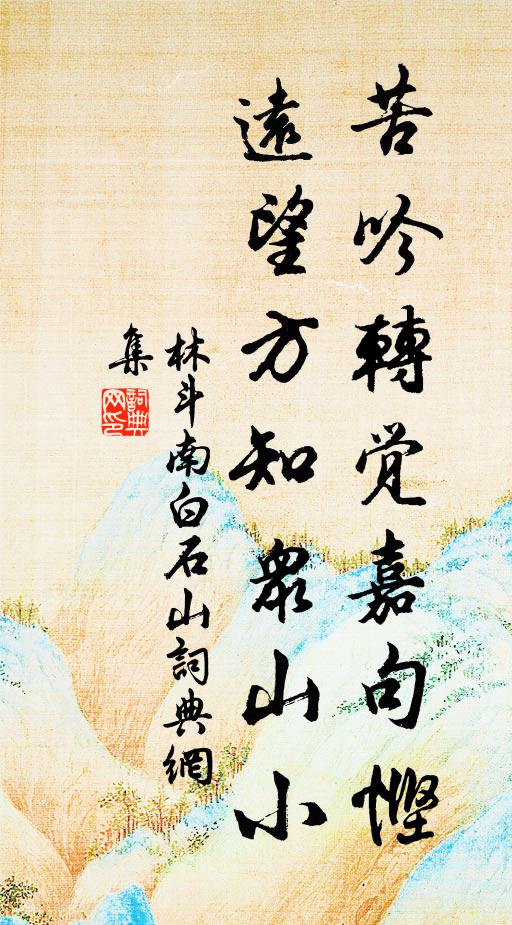 苦吟轉覚嘉句慳
遠望方知衆山小
林斗南白石山詞典網
集
詞典网印